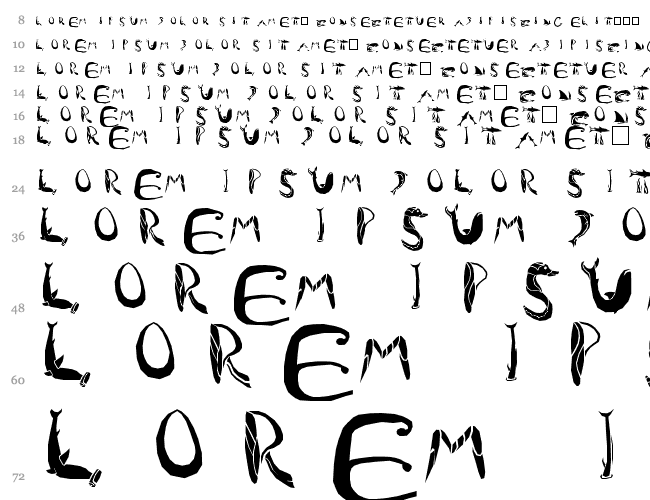 8 LOREM IPSUM DOLOR SIT AMET□ CONSECTETUER ADIPISCING ELIT□□□
10 LOREM IPSUM DOLOR SIT AMET□ CONSECTETUER ADIPISCING
12 LOREM IPSUM DOLOR SIT AMET□ CONSECTETUER A
14 LOREM IPSUM DOLOR SIT AMET□ CONSECT
16 LOREM IPSUM DOLOR SIT AMET□ CONS
18 LOREM IPSUM DOLOR SIT AMET□
24 LOREM IPSUM DOLOR SIT
36 LOREM IPSUM DO
48 LOREM IPSU
60 LOREM IP
72 LOREM I